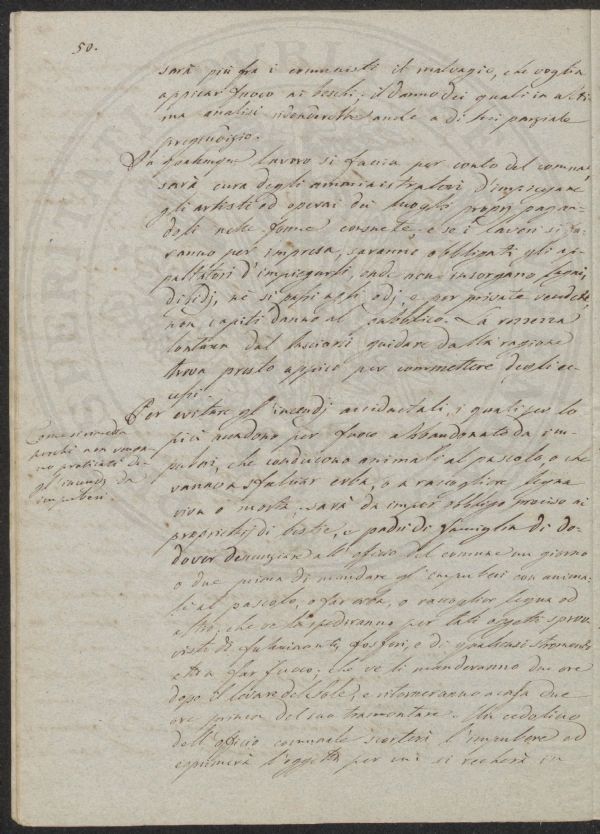 50.
sarà più fra i comunisti il malvagio, che voglia
appicar fuoco ai boschi; il danno dei quali in ulti-
ma analisi ridonderebbe anche a di lui parziale
pregiudizio.
In qualunque lavoro si faccia per conto del comune,
sarà cura degli amministratori d'impiegare
gli artisti ed operai dei luoghi propri pagan-
doli nelle forme consuete e se i lavori si fa-
ranno per impresa, saranno obbligati gli ap-
paltatori d'impiegarli, onde non insorgano
dissidj, ne si odj, e per private vendette
non capiti danno al pubblico. La rozzezza
lontana dal lasciarsi guidare dalla ragione
trova presto appico per commettere degli ec-
cessi.
Per evitare gl'incendj accidentali, i quali per lo
più accadono per fuoco abbandonato da im-
puberi, che conducono animali al pascolo, o che
vanno a sfalciar erba, o a raccogliere legna
viva o morta, sarà da imporre obbligo preciso ai
proprietarj di bestie, e padri di famiglia di do-
dover denunziare all'oficio del comune un giorno
o due prima di mandare gl'impuberi con anima-
li al pascolo, o far erba, o raccoglier legna od
altro, che ve li spediranno per tali oggetti sprov-
visti di fulminanti, fosfori, e di qualsiasi stromento
atto a far fuoco: che ve li manderanno due ore
dopo il levare del sole, e ritorneranno a casa due
ore prima del suo tramontare. Un cedolino
dell'officio comunale scorterà l'impubere ed
esprimerà l'oggetto per cui si recherà in
Come si rimedia
perchè non venga-
no praticati de-
gl'incendj da
impuberi.